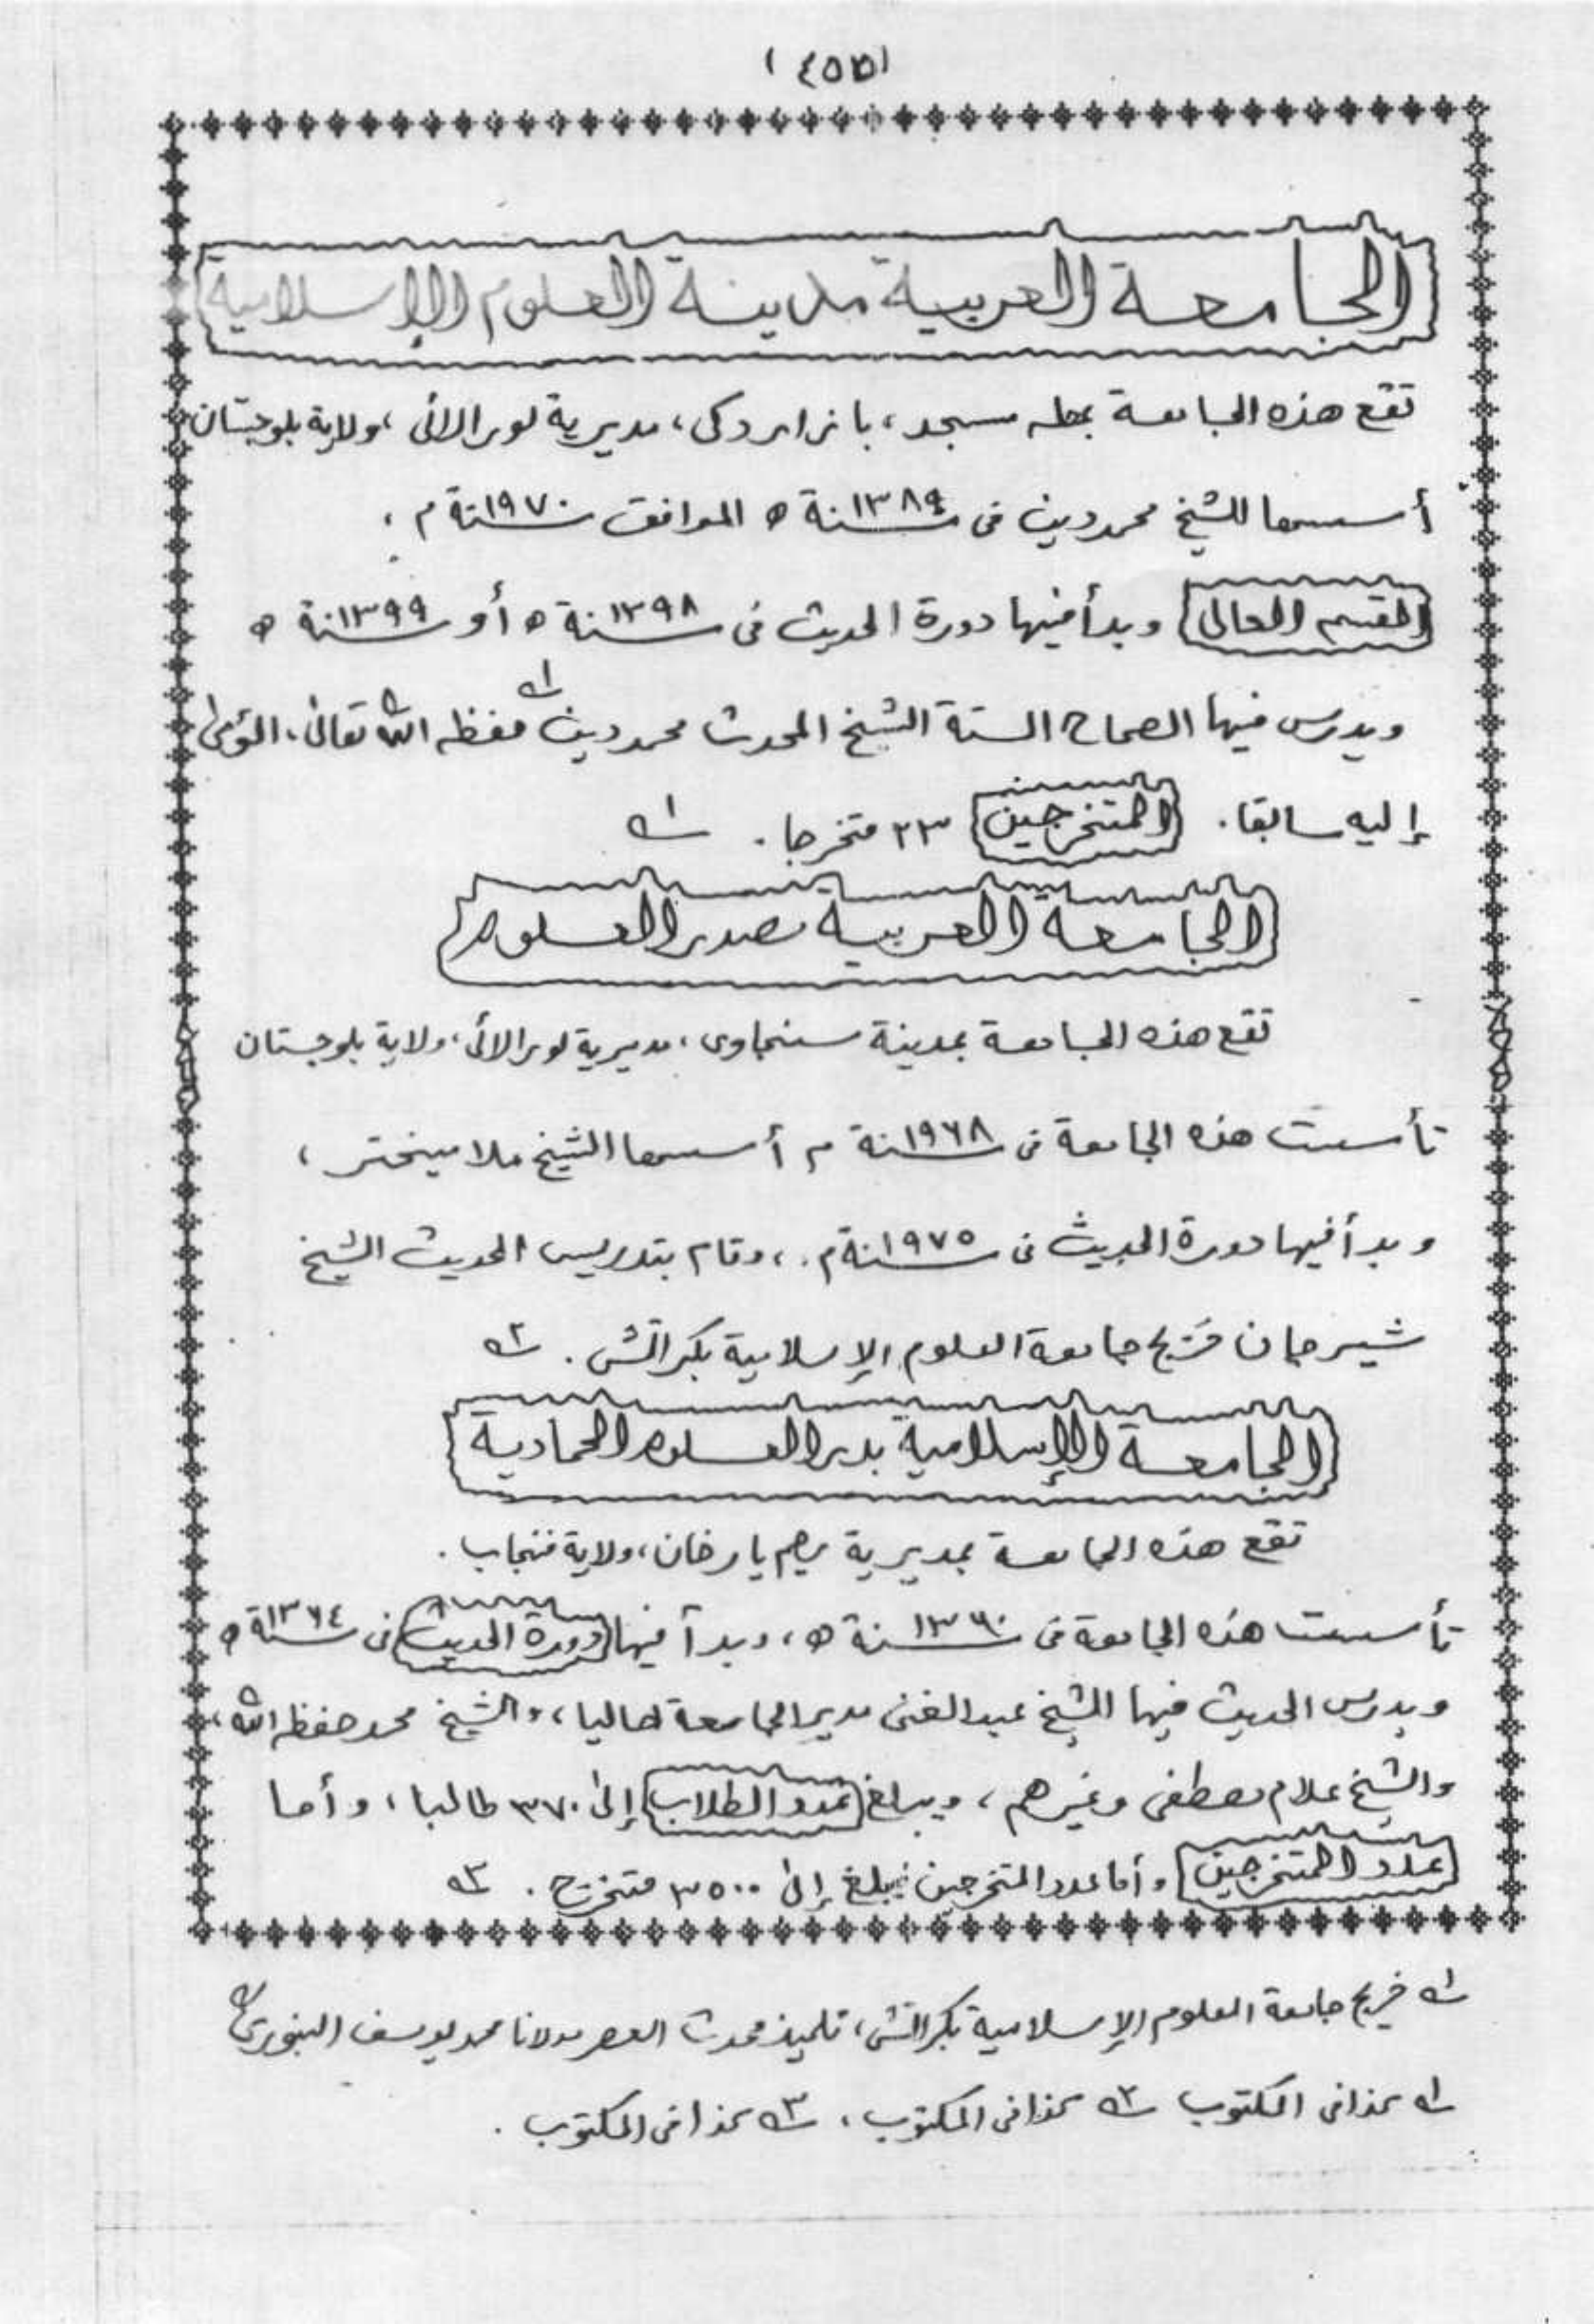 (٤٥٥)
الجامعة العربية مدينة العلوم الإسلامية
تقع هذه الجامعة بمطه مسجد، بازار دكى، مديرية لورالائى، ولاية بلوجستان
أسسها الشيخ محمد دين فى سنة ١٣٨٩ ه الموافق سنة ١٩٧٠ م،
القسم العالى وبدأ فيها دورة الحديث فى سنة ١٣٩٨ ه أو سنة ١٣٩٩ ه
ويدرس فيها الصحاح الستة الشيخ المحدث محمد دين ١ حفظه الله تعالى،
إليه سابقا. المتخرجين ٢٣ متخرجا. ١
الجامعة العربية صدر العلوم
تقع هذه الجامعة بمدينة سنجاوى، مديرية لورالائى، ولاية بلوجستان
تأسست هذه الجامعة فى سنة ١٩٦٨ م أسسها الشيخ ملا مينختر،
وبدأ فيها دورة الحديث فى سنة ١٩٧٥ م.، وقام بتدريس الحديث الشيخ
شير جان خريج جامعة العلوم الإسلامية بكراتشى. ٢
الجامعة الإسلامية بدر العلوم الحمادية
تقع هذه الجامعة بمديرية رحيم يار خان، ولاية فنجاب.
تأسست هذه الجامعة فى سنة ١٣٦٠ ه، وبدأ فيها دورة الحديث فى سنة ١٣٦٤ ه
ويدرس الحديث فيها الشيخ عبد الغنى مدير الجامعة حاليا، والشيخ محمد حفظه الله،
والشيخ غلام مصطفى وغيرهم، ويبلغ عدد الطلاب إلى ٣٧٠ طالبا، وأما
عدد المتخرجين وأما عدد المتخرجين فيبلغ إلى ٣٥٠٠ متخرج. ٣
١ خريج جامعة العلوم الإسلامية بكراتشى، تلميذ محدث العصر مولانا محمد يوسف البنورى
١ كذا فى المكتوب ٢ كذا فى المكتوب، ٣ كذا فى المكتوب.